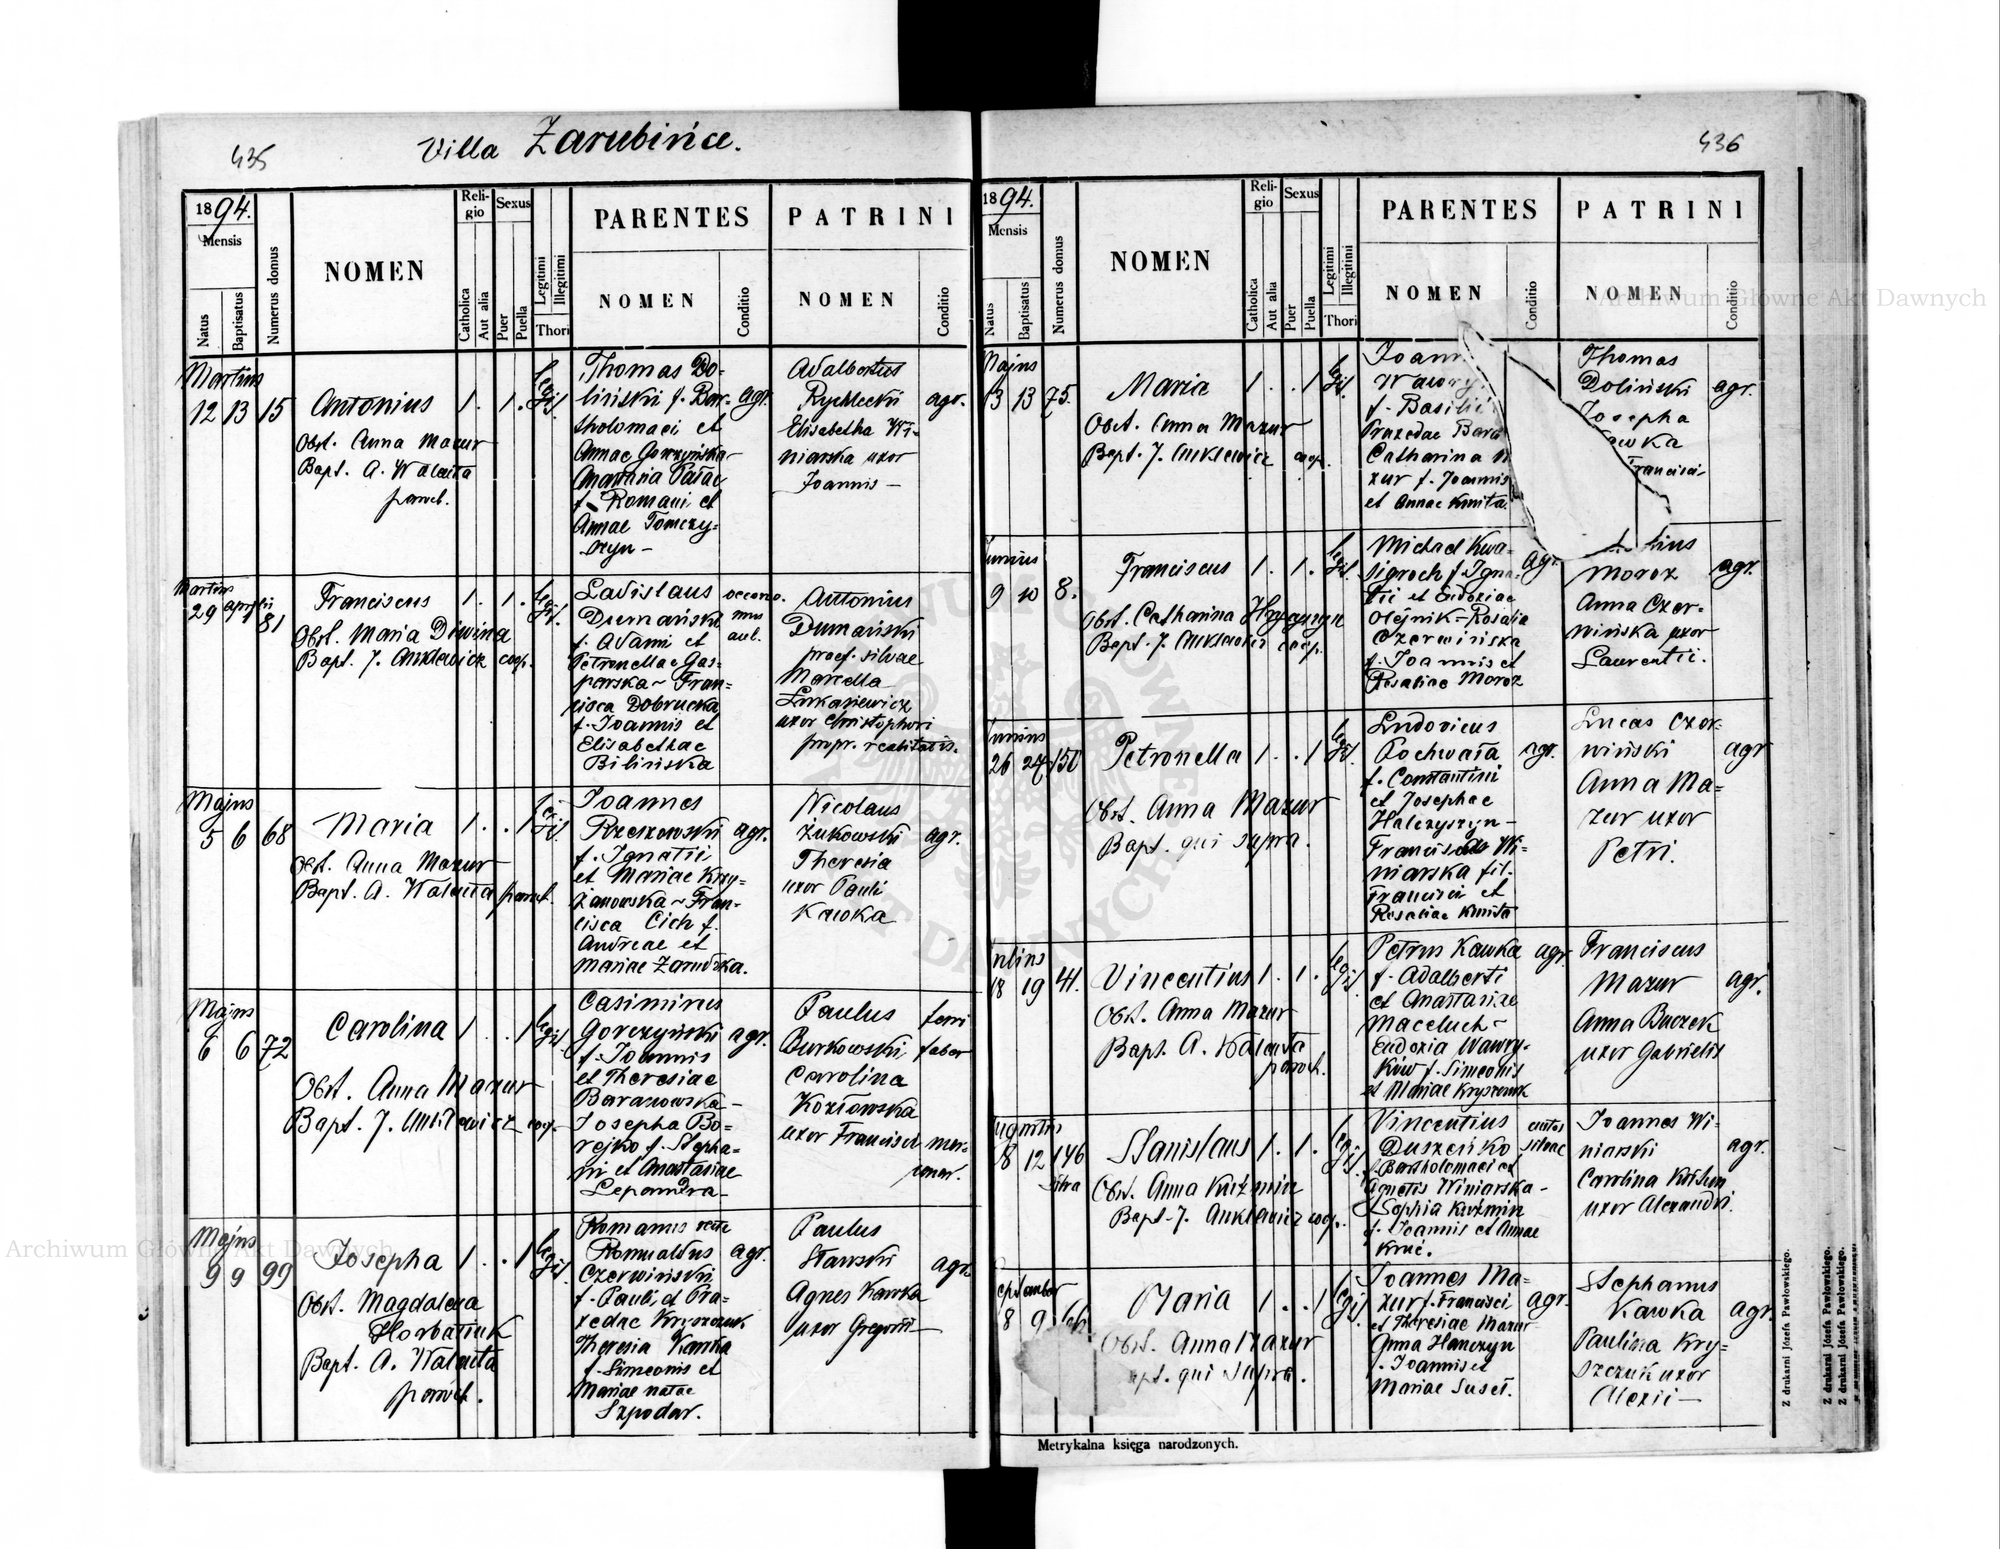 435
Villa Zarubińce.
1894.
Mensis
Natus
Baptisatus
Numerus domus
NOMEN
Religio
Catholica
Aut alia
Sexus
Puer
Puella
Legitimi
Illegitimi
Thori
PARENTES
NOMEN
Conditio
PATRINI
NOMEN
Conditio
Martius
12 13 15
Antonius
Obst. Anna Mazur
Bapt. A. Walenta
paroch.
1. 1.
legit.
Thomas Do-
liński f. Bar-
tholomaei et
Annae Gorzyńska-
Anastasia Pałac
f. Romani et
Annae Tomczy-
szyn -
agr.
Adalbertus
Rychlecki
Elisabetha Wi-
niarska uxor
Joannis -
agr.
Martius
29 aprilis
81
Franciscus
Obst. Maria Diwizna
Bapt. J. Anklewicz coop.
1. 1.
legit.
Ladislaus
Dumański
f. Adami et
Petronellae Gas-
perska - Fran-
cisca Dobrucka
f. Joannis et
Elisabethae
Bilińska
oecono-
mus
aul.
Antonius
Dumański
praef. silvae
Marcella
Łukasiewicz
uxor Christophori
propr. realitatis.
Majus
5 6 68
Maria
Obst. Anna Mazur
Bapt. A. Walenta paroch.
1. . 1
legit.
Joannes
Rzeszowski
f. Ignatii
et Mariae Krzy-
żanowska - Fran-
cisca Cich f.
Andreae et
Mariae Zarudzka.
agr.
Nicolaus
Żukowski
Theresia
uxor Pauli
Kawka
agr.
Majus
6 6 72
Carolina
Obst. Anna Mazur
Bapt. J. Anklewicz coop.
1 . . 1
legit.
Casimirus
Gorczyński
f. Joannis
et Theresiae
Baranowska -
Josepha Bo-
rejko f. Stepha-
ni et Anastasiae
Lepandra -
agr.
Paulus
Burkowski
Carolina
Kozłowska
uxor Francisci
ferri
faber
mer-
cenar.
Majus
9 9 99
Josepha
Obst. Magdalena
Horbatiuk
Bapt. A. Walenta
paroch.
1 . . 1
legit.
Romanus recte
Romualdus
Czerwiński
f. Pauli et Pra-
xedae Kryszczuk
Theresia Kawka
f. Simeonis et
Mariae natae
Szpodar.
agr.
Paulus
Sławski
Agnes Kawka
uxor Gregorii -
agr.
436
1894.
Mensis
Natus
Baptisatus
Numerus domus
NOMEN
Religio
Catholica
Aut alia
Sexus
Puer
Puella
Legitimi
Illegitimi
Thori
PARENTES
NOMEN
Conditio
PATRINI
NOMEN
Conditio
Majus
13 13 75.
Maria
Obst. Anna Mazur
Bapt. J. Anklewicz coop.
1 . . 1
legit.
Joann
Wawry
f. Basilii
Praxedae Bara
Catharina M
zur f. Joannis
et Annae Kmita.
Thomas
Doliński
Josepha
awka
Francisci
agr.
Junius
9 10 8.
Franciscus
Obst. Catharina Hrycyszyn
Bapt. J. Anklewicz coop.
1. 1.
legit.
Michael Kwa-
sigroch f. Igna-
tii et Eudoxiae
Olejnik - Rosalia
Czerwińska
f. Joannis et
Rosaliae Moroz
agr.
lius
Moroz
Anna Czer-
wińska uxor
Laurentii.
agr.
Junius
26 27 150
Petronella
Obst. Anna Mazur
Bapt. qui supra.
1 . . 1
legit.
Ludovicus
Pochwała
f. Constantini
et Josephae
Halczyszyn -
Francisca Wi-
niarska fil.
Francisci et
Rosaliae Kmita
agr.
Lucas Czer-
wiński
Anna Ma-
zur uxor
Petri.
agr
Julius
18 19 41.
Vincentius
Obst. Anna Mazur
Bapt. A. Walenta
paroch.
1. 1.
legit.
Petrus Kawka
f. Adalberti
et Anastasiae
Maceluch -
Eudoxia Wawry-
ków f. Simeonis
et Mariae Kryszczuk
agr.
Franciscus
Mazur
Anna Buczek
uxor Gabrielis
agr.
Augustus
8 12 146
silva
Stanislaus
Obst. Anna Kuźmin
Bapt. J. Anklewicz coop.
1. 1.
legit.
Vincentius
Duszeńko
f. Bartholomaei et
Agnetis Winiarska -
Sophia Kuźmin
f. Joannis et Annae
Kruć.
custos
silvae
Joannes Wi-
niarski
Carolina
uxor Alexandri.
agr.
September
8 9
Maria
Obst. Anna Mazur
apt. qui supra.
1 . . 1
legit.
Joannes Ma-
zur f. Francisci
et Theresiae Mazur
Anna Hanczyn
f. Joannis et
Mariae Suseł.
agr.
Stephanus
Kawka
Paulina Kry-
szczuk uxor
Alexii -
agr.
Metrykalna księga narodzonych.
Z drukarni Józefa Pawłowskiego.
Z drukarni Józefa Pawłowskiego.
Z drukarni Józefa Pawłowskiego.
Archiwum Główne Akt Dawnych
Archiwum Główne Akt Dawnych